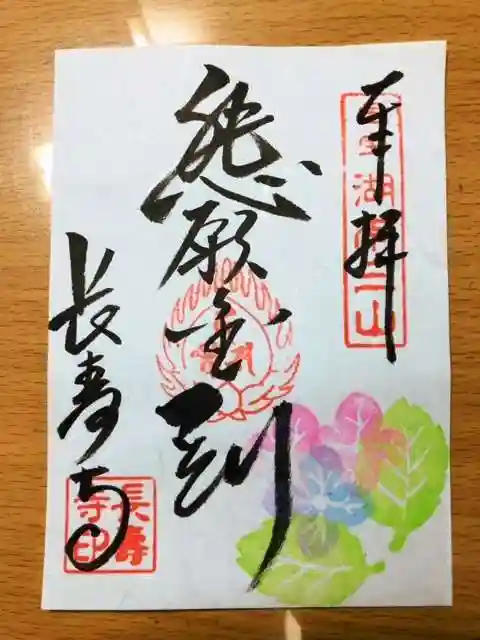 奉拝
湖
山
願金剛
長寿寺
長壽
寺印